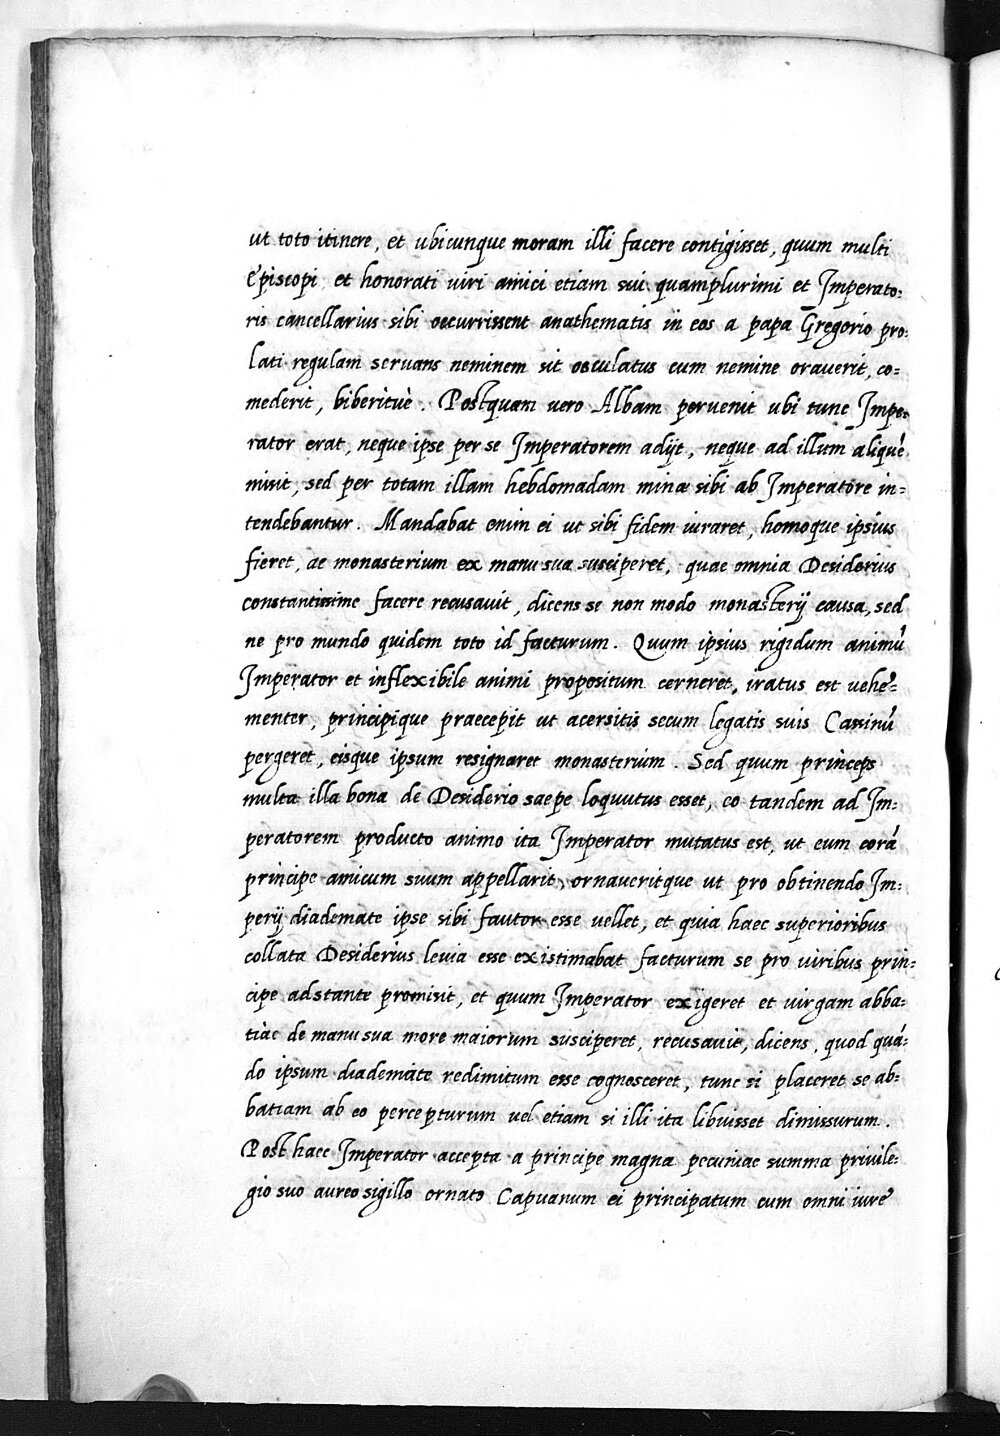 ut toto itinere, et ubicunque moram illi facere contigisset, quum multi
Episcopi et honorati uiri amici etiam sui quamplurimi et Imperato:
ris cancellarius sibi occurrissent anathematis in eos a papa Gregorio pro:
lati regulam seruans neminem sit osculatus cum nemine orauerit, co=
mederit, biberituè. Postquam uero Albam peruenit ubi tunc Impe:
rator erat, neque ipse per se Imperatorem adijt, neque ad illum aliquē
misit, sed per totam illam hebdomadam minæ sibi ab Imperatore in=
tendebantur. Mandabat enim ei ut sibi fidem iuraret, homoque ipsius
fieret, ac monasterium ex manu sua susciperet, quae omnia Desiderius
constantissime facere recusauit, dicens se non modo monasterij causa, sed
ne pro mundo quidem toto id facturum. Quum ipsius rigidum animū
Imperator et inflexibile animi propositum cerneret, iratus est uehe=
menter, principique praecepit ut acersitis secum legatis suis Casinū
pergeret, eisque ipsum resignaret monasterium. Sed quum princeps
multa illa bona de Desiderio saepe loquutus esset, eo tandem ad Im:
peratorem producto animo ita Imperator mutatus est, ut eum corā
principe amicum suum appellarit, ornaueritque ut pro obtinendo Im:
perij diademate ipse sibi fautor esse uellet, et quia haec superioribus
collata Desiderius leuia esse existimabat facturum se pro uiribus prin:
cipe adstante promisit, et quum Imperator exigeret et uirgam abba:
tiae de manu sua more maiorum susciperet, recusauit, dicens, quod quā:
do ipsum diademate redimitum esse cognosceret, tunc si placeret se ab:
batiam ab eo percepturum uel etiam si illi ita libuisset dimissurum.
Post haec Imperator accepta a principe magna pecuniae summa priuile:
gio suo aureo sigillo ornato Capuanum ei principatum cum omni iure